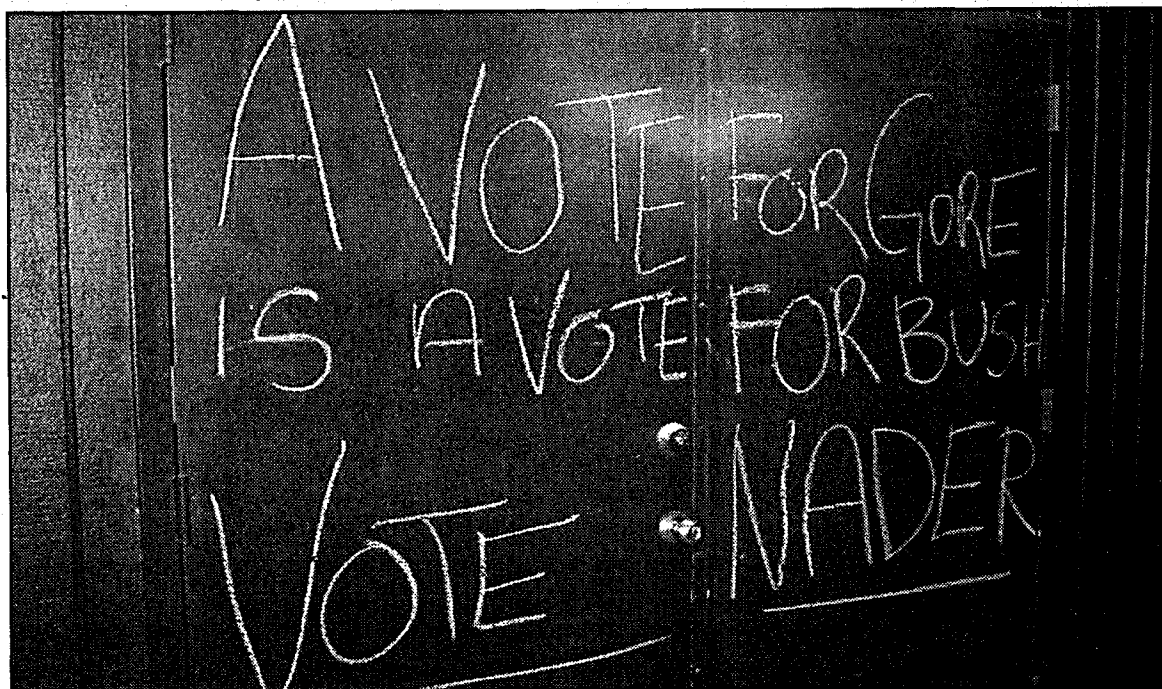 A VOTE FOR GORE
IS A VOTE FOR BUSH
VOTE NADER